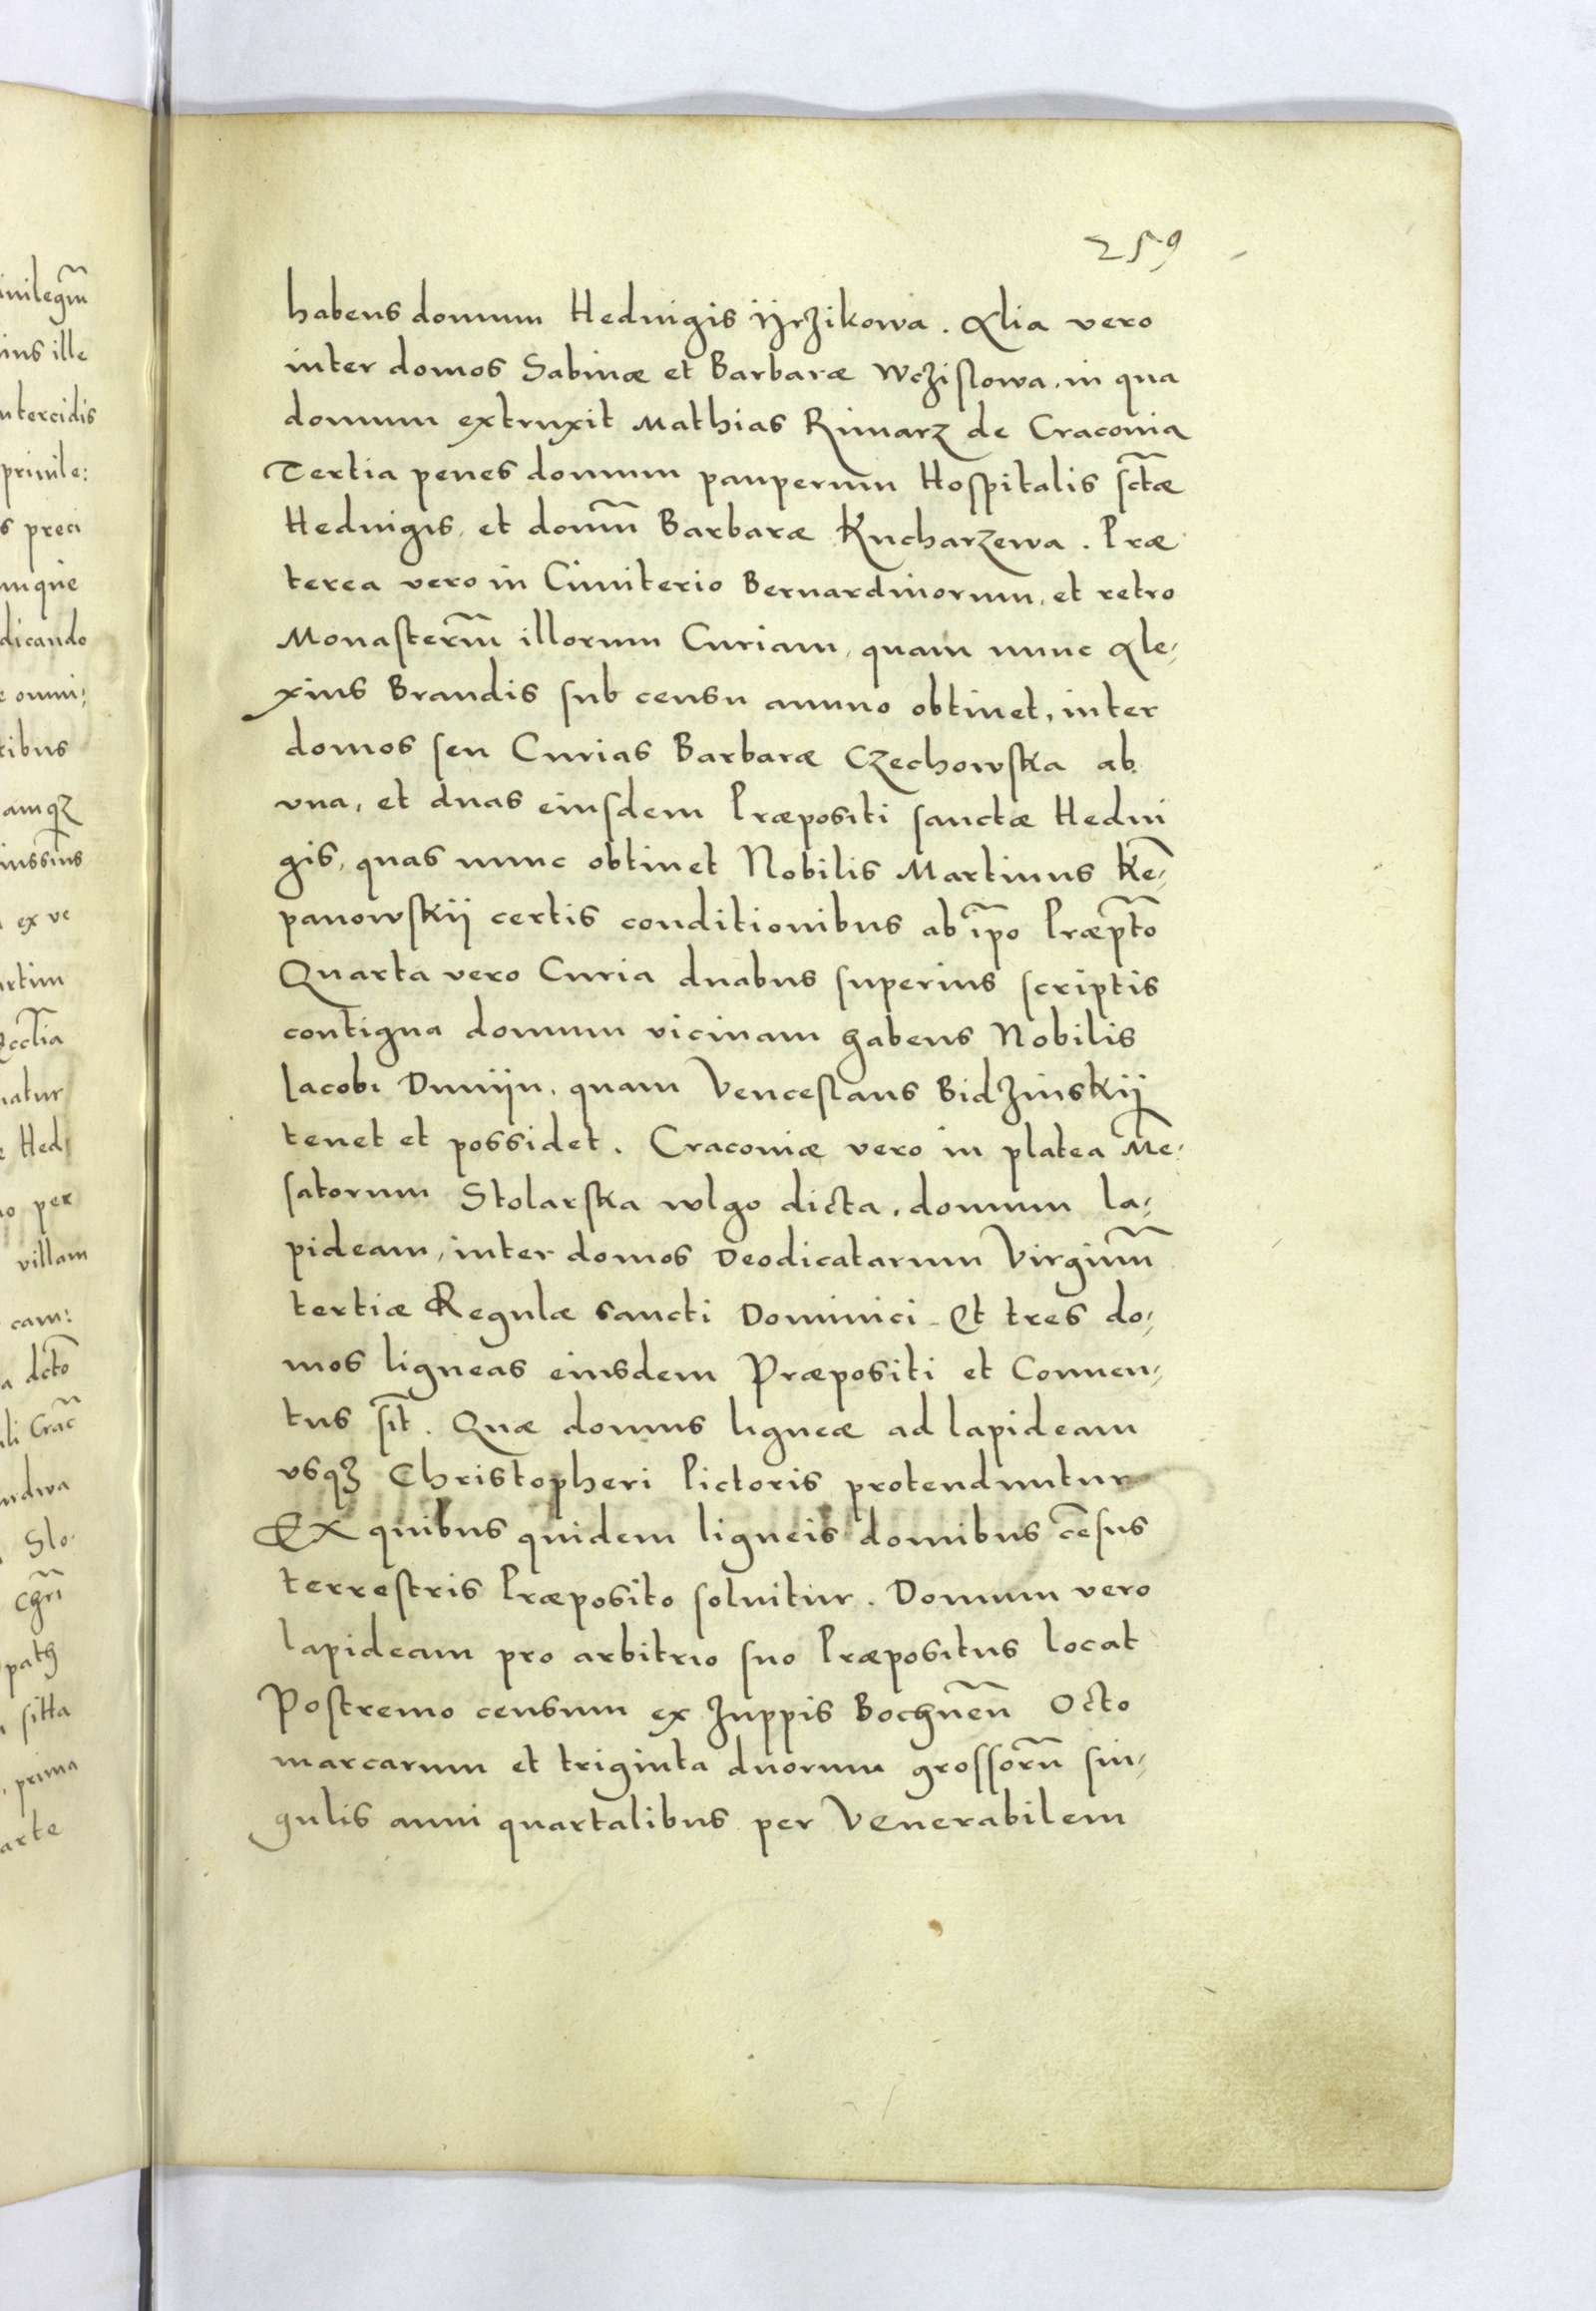 259
habens domum Heduigis ÿrzikowa. Alia vero
inter domos Sabinæ et Barbaræ Wczislowa. in qua
domum extruxit Mathias Rimarz de Craconia
Tertia penes domum pauperum Hospitalis sctæ
Heduigis, et domũ Barbaræ Kucharzewa. Præ
terea vero in Cimiterio Bernardinorum, et retro
Monasterm̃ illorum Curiam, quam nunc Ale,
xius Brandis sub censu annuo obtinet, inter
domos seu Curias Barbaræ Czechowska ab
vna, et duas eiusdem Præpositi sanctæ Hedui
gis, quas nunc obtinet Nobilis Martinus Kẽ,
panowskij certis conditionibus ab ip̃o Præpt̃o
Quarta vero Curia duabus superius scriptis
contigua domum vicinam habens Nobilis
Iacobi Dmijn. quam Venceslaus Bidzinskij
tenet et possidet. Cracouiæ vero in platea Mẽ,
satorum Stolarska wlgo dicta, domum la,
pideam, inter domos Deodicatarum Virginũ
tertiæ Regulæ sancti Dominici. Et tres do,
mos ligneas eiusdem Præpositi et Conuen,
tus sĩt. Quæ domus ligneæ ad lapideam
vsqꝫ Christopheri Pictoris protenduntur
Ex quibus quidem ligneis domibus cẽsus
terrestris Præposito soluitur. Domum vero
lapideam pro arbitrio suo Præpositus locat
Postremo censum ex Zuppis Bochneñ Octo
marcarum et triginta duorum grossorũ sin,
gulis anni quartalibus per Venerabilem